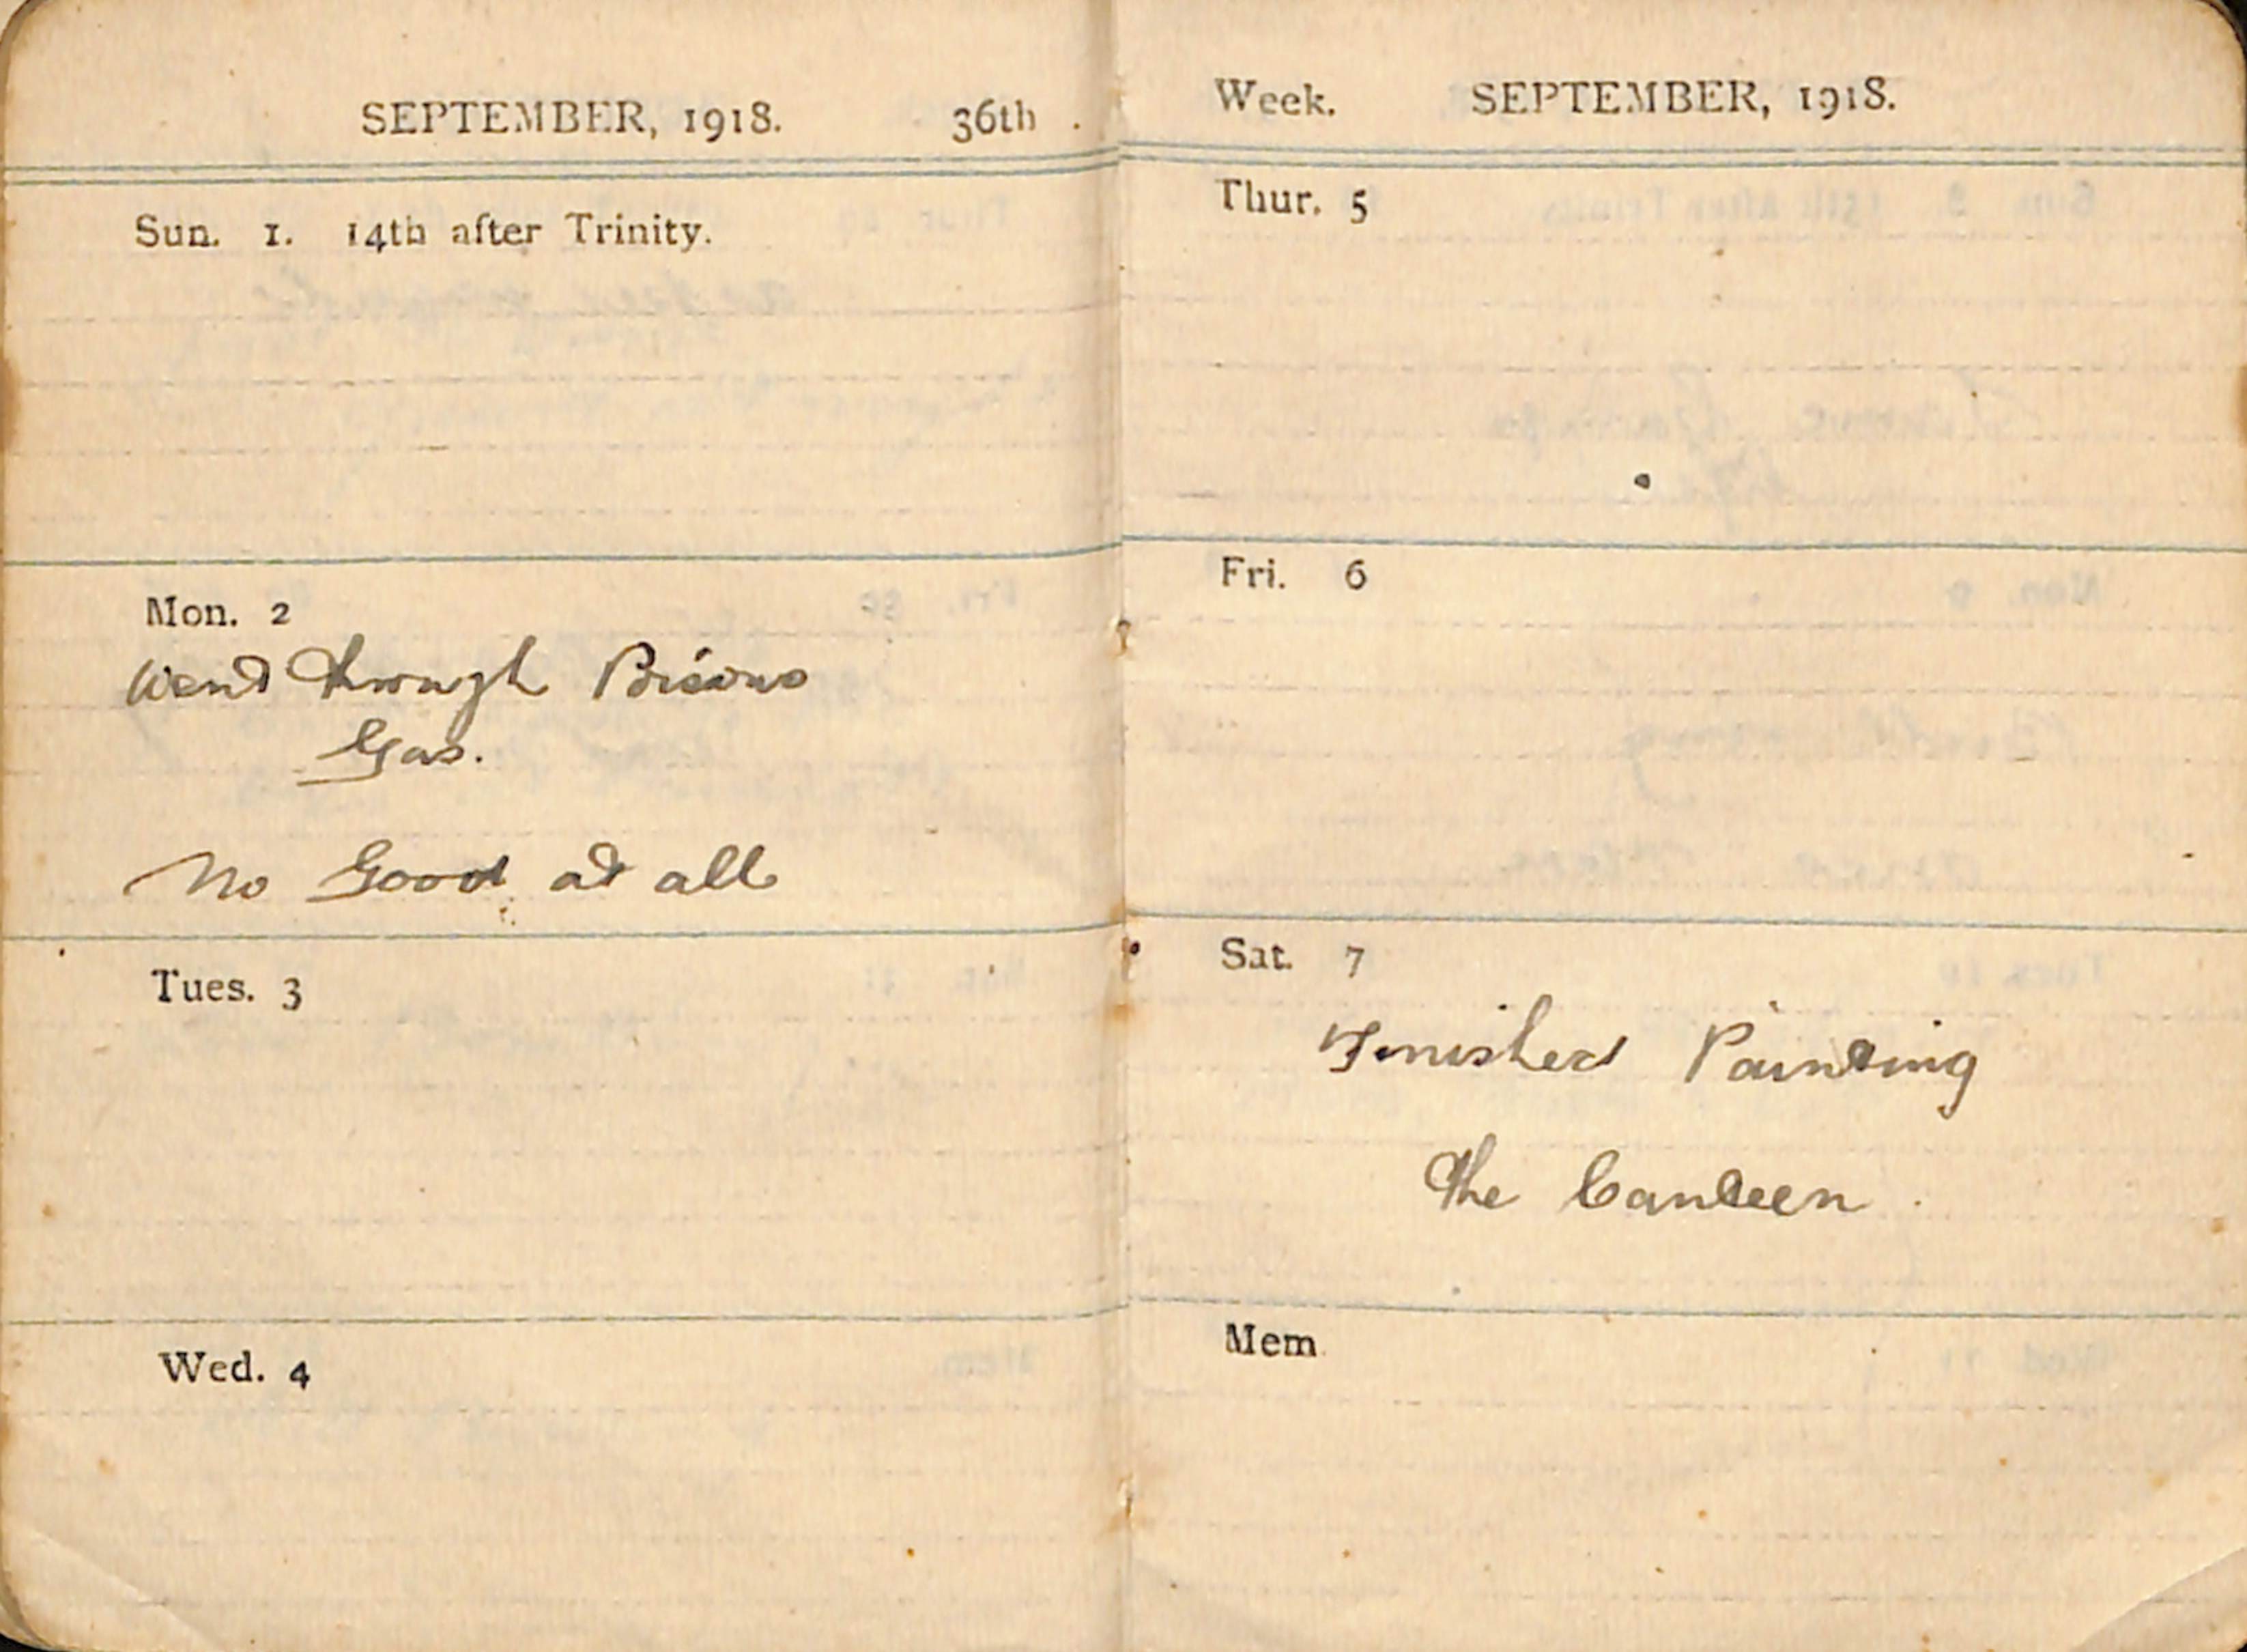 SEPTEMBER, 1918. 36th
Sun. 1. 14th after Trinity.
Mon. 2
Went through
Gas.
No Good at all
Tues. 3
Wed. 4
Week. SEPTEMBER, 1918.
Thur. 5
Fri. 6
Sat. 7
Finished Painting
the Canteen.
Mem